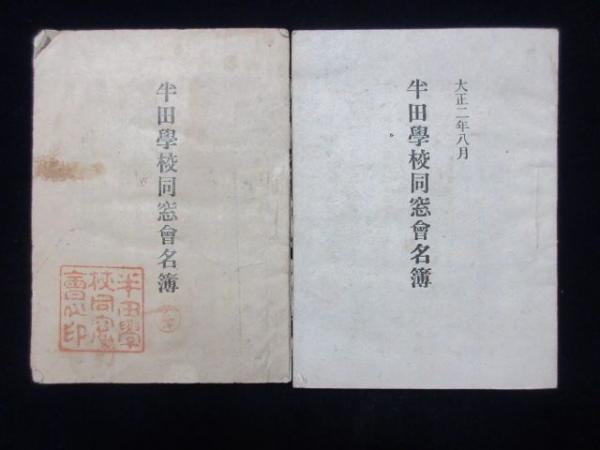 半田學校同窓會名簿
半田學
校同窓
會之印
大正二年八月
半田學校同窓會名簿